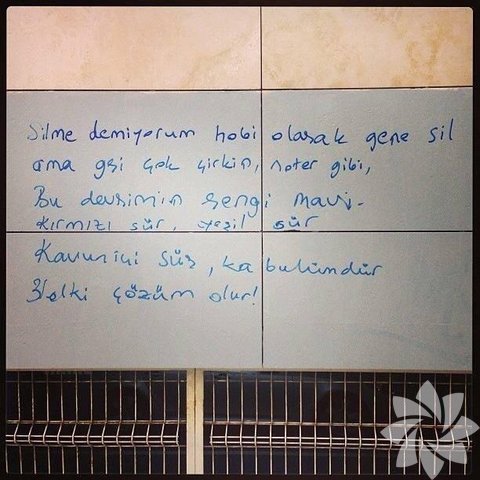 Silme demiyorum hobi olarak gene sil
ama gri çok çirkin, noter gibi,
Bu devrimin rengi mavi.
kırmızı sür, yeşil sür
Kavuniçi sür, kabulümdür
Belki çözüm olur!